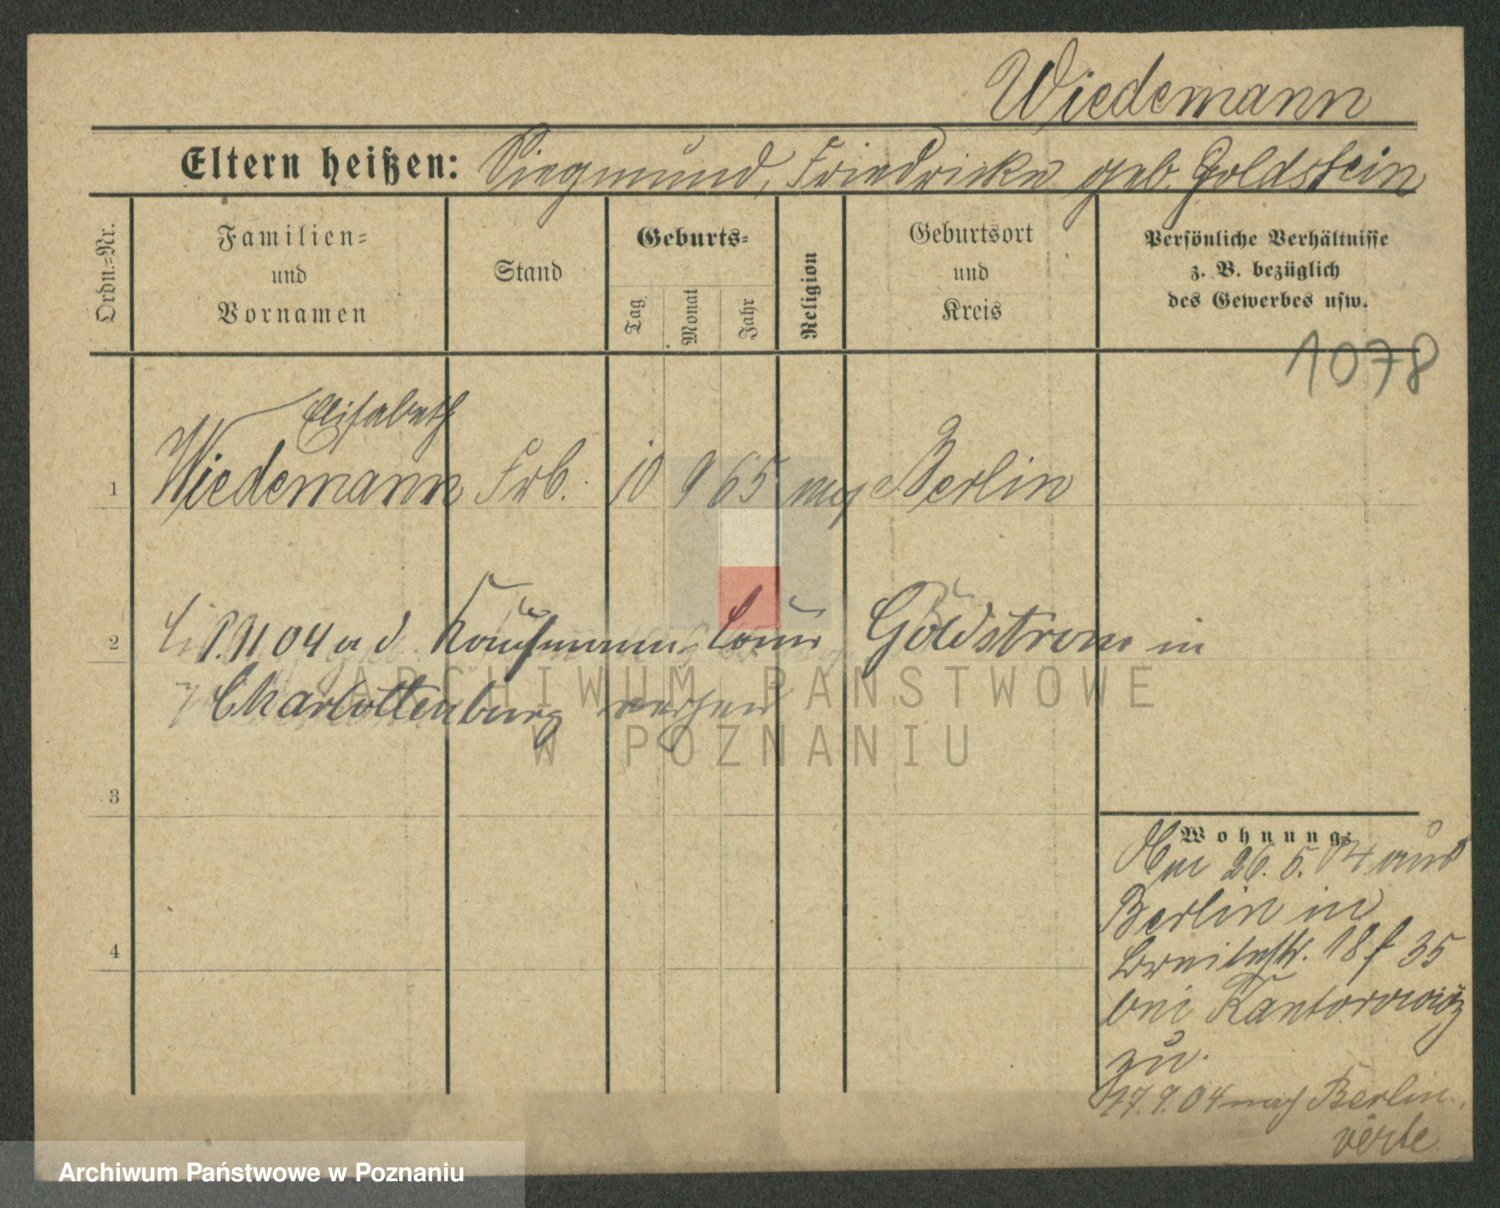 Wiedemann
Eltern heißen: Siegmund, Friedricke geb. Goldstein
Ordn.-Nr.
Familien-
und
Vornamen
Stand
Geburts-
Tag
Monat
Jahr
Religion
Geburtsort
und
Kreis
Persönliche Verhältnisse
z. B. bezüglich
des Gewerbes usw.
1078
Elisabeth
1 Wiedemann Frl. 10 9 65 Berlin
2 11 04 a d Kaufmann Louis Goldstrom in
Charlottenburg
ARCHIWUM PAŃSTWOWE
W POZNANIU
3
4
Wohnung:
26. 5. 04 aus
Berlin in
18 f 35
bei Kantorowicz
zu.
17. 9. 04 nach Berlin
verte
Archiwum Państwowe w Poznaniu